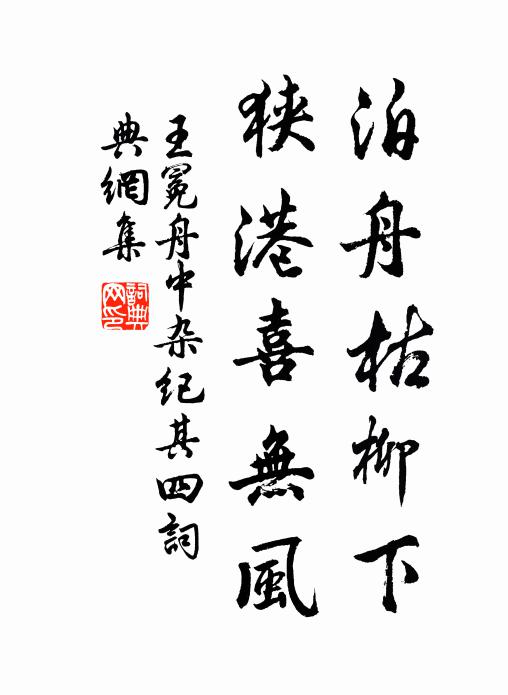 泊舟枯柳下
狭港喜無風
王冕舟中杂纪其四詞
典網集
詞典网印